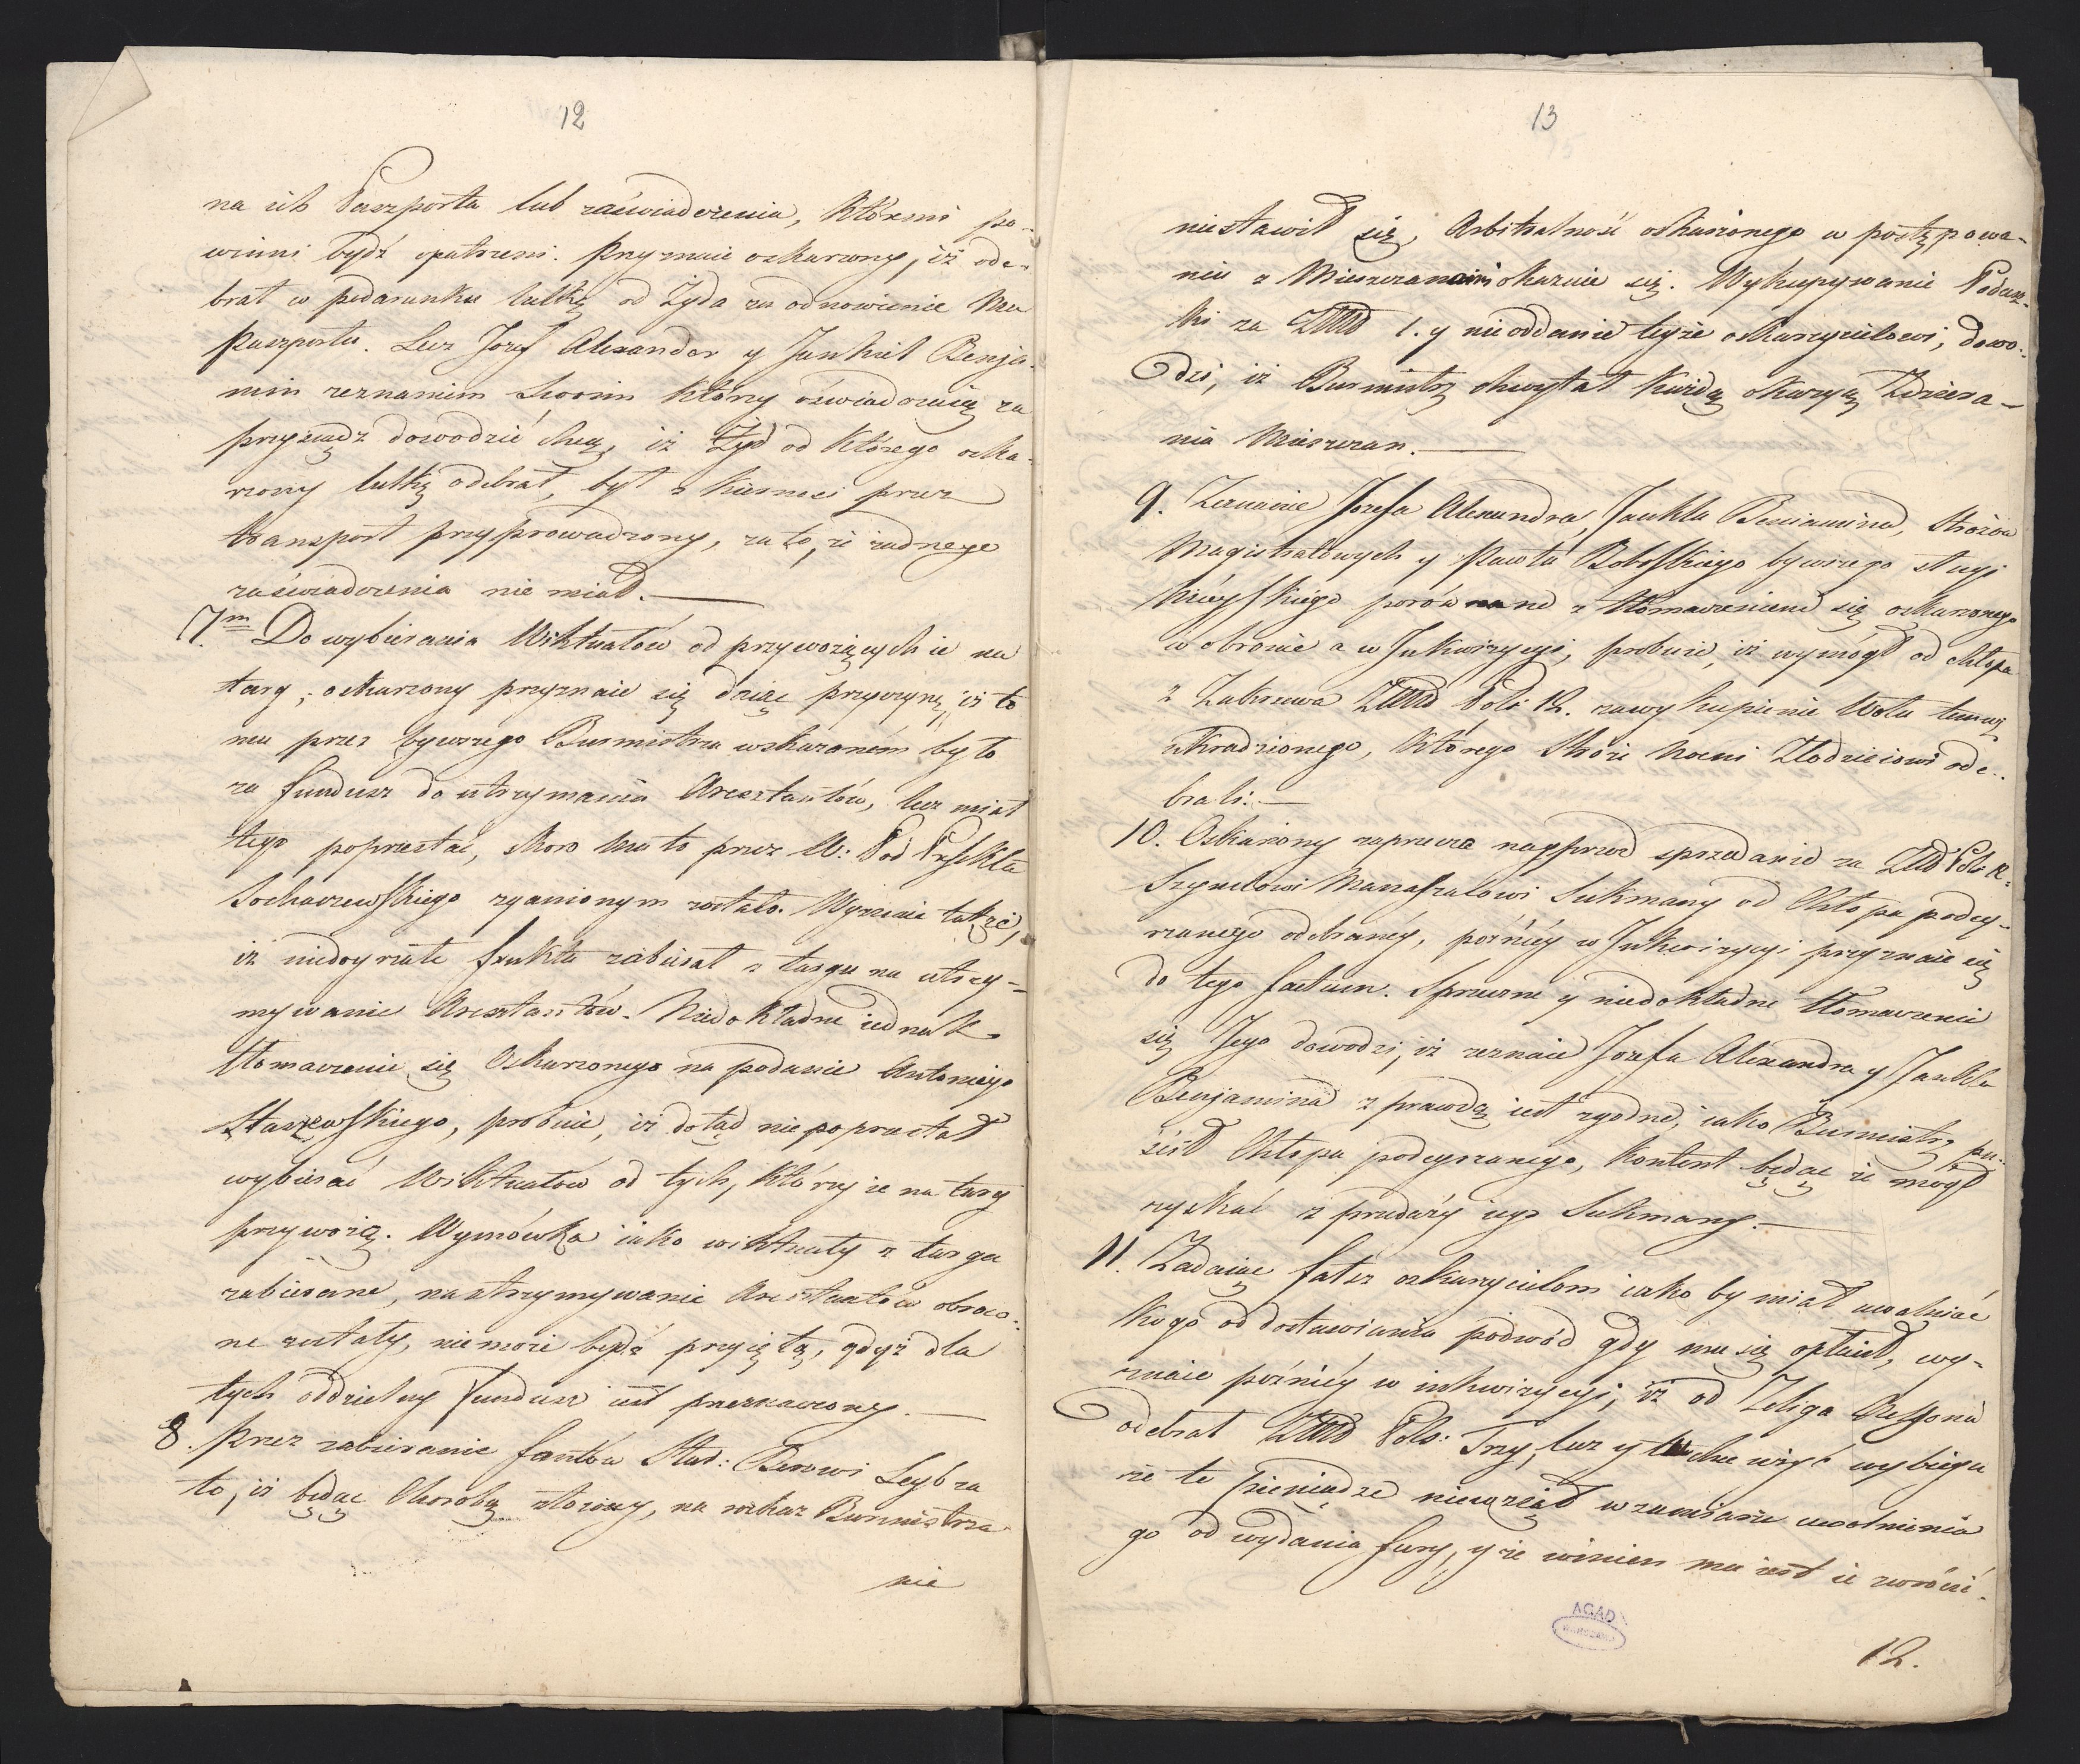 12
na ich Paszporta lub zaświadczenia, któremi po-
winni bydź opatrzeni. Przyznaie oskarzony, iż ode-
brał w podarunku lulkę od Żyda za odnowienie Mu
Paszportu. Lecz Jozef Alexander y Jankiel Benja-
min zeznaniem Swoim który oświadczaią za
przysiądz dowodzić chcą, iż Żyd od którego oska-
rzony lulkę odebrał, był z kiernozi przez
transport przyprowadzony, za to, że żadnego
zaświadczenia nie miał.
7.m Do wybierania Wiktuałów od przywożących ie na
targ, oskarzony przyznaie się daiąc przyczynę, iż to
mu przez bywszego Burmistrza wskazaném było
za fundusz do utrzymania Aresztantów, lecz miał
tego poprzestać, skoro Mu to przez W: Pod Prefekta
Sochaczewskiego zganionym zostało. Wyznaie także,
iż niedoyrzałe frukta zabierał z targu na utrzy-
mywanie Aresztantów. Niedokładne iednak
tłomaczenie się Oskarzonego na podanie Antoniego
Staszewskiego, probuie, iż dotąd nie poprzestał
wybierać Wiktuałów od tych, którzy ie na targ
przywożą. Wymówka iako wiktuały z targu
zabierane, na utrzymywanie Aresztantów obróco-
ne zostały, niemoże bydź przyiętą, gdyż dla
tych oddzielny Fundusz iest przeznaczony.
8. Przez zabieranie fantów Star: Berowi Leyb za
to, iż będąc Chorobą złożony, na rozkaz Burmistrza
nie
13
niestawił się, Arbitralność oskarżonego w postępowa-
niu z Mieszczanami okazuie się. Wykupywanie Podusz-
ki za Złłłł 1. y nieoddanie teyże oskarzycielowi, dowo-
dzi, iż Burmistrz chwytał każdą okazyą Zdziera-
nia Mieszczan.
9. Zeznanie Jozefa Alexandra, Jankla Beniamina, Stróżów
Magistratowych y Pawła Bobsskiego bywszego sługi
Mieyskiego porównane z tłomaczeniem się oskarzonego
w obronie a w Inkwizycyi, probuie, iż wymógł od chłopa
z Zakrzewa Złłłł Pols 12. za wykupienie Wołu temuż
ukradzionego, którego Stróże Nocni Złodzieiowi ode-
brali:
10. Oskarżony zaprzecza nayprzód sprzedanie za Złł Pols 12.
Szymelowi Marszałowi Sukmany od Chłopa podey-
rzanego odebraney, poźniéy w Inkwizycyi przyznaie się
do tego factum. Sprzeczne y niedokładne tłomaczenie
się Jego dowodzi, iż zeznaie Jozefa Alexandra y Jankla
Benjamina z prawdą iest zgodne, iako Burmistrz pu-
ścił Chłopa podeyrzanego, kontent będąc że mógł
zyskać z przedaży iego Sukmany.
11. Zadaiąc fałsz oskarzycielom iako by miał uwalniać
kogo od dostawiania podwód gdy mu się opłacił, wy-
znaie poźniéy w inkwizycyi, iż od Zeliga
odebrał Złłłł Pols: Trzy, lecz y tu chce użyć wybiegu
że te pieniądze niewziął w zamiarze uwolnienia
go od wydania fury, y że winien mu iest ie zwrócić.
AGAD
WARSZAWA
12.